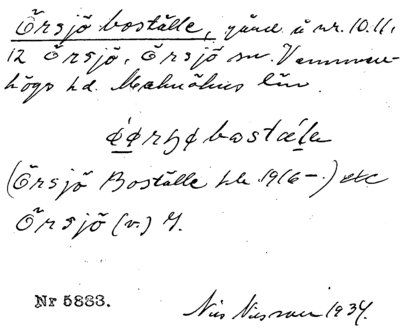 Örsjö boställe, gård å nr. 10, 11,
12 Örsjö, Örsjö sn. Vemmen-
högs hd. Malmöhus län.
bostä
(Örsjö Boställe hle 1916–) etc
Örsjö (v.) 4.
Nr 5883.
Nils Nilsson 1934.